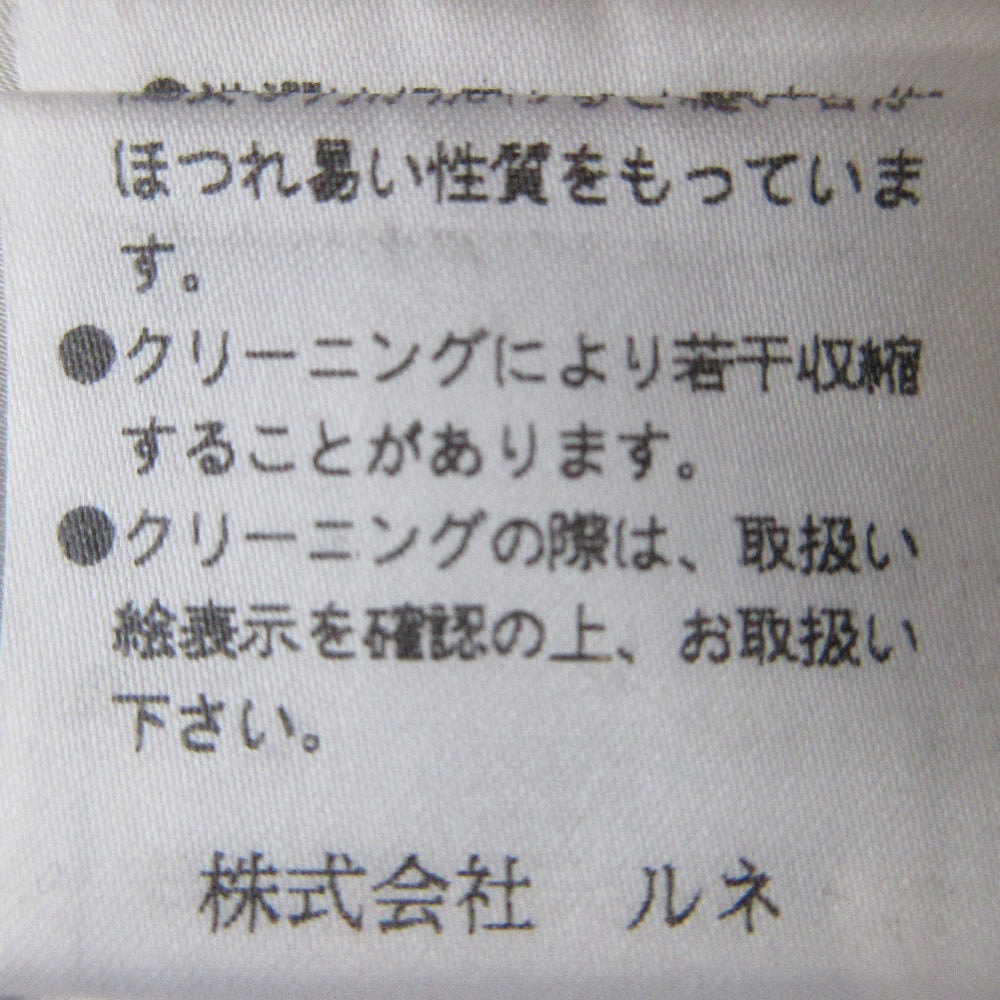 ほつれ易い性質をもっていま
す。
●クリーニングにより若干収縮
することがあります。
●クリーニングの際は、取扱い
絵表示を確認の上、お取扱い
下さい。
株式会社 ルネ